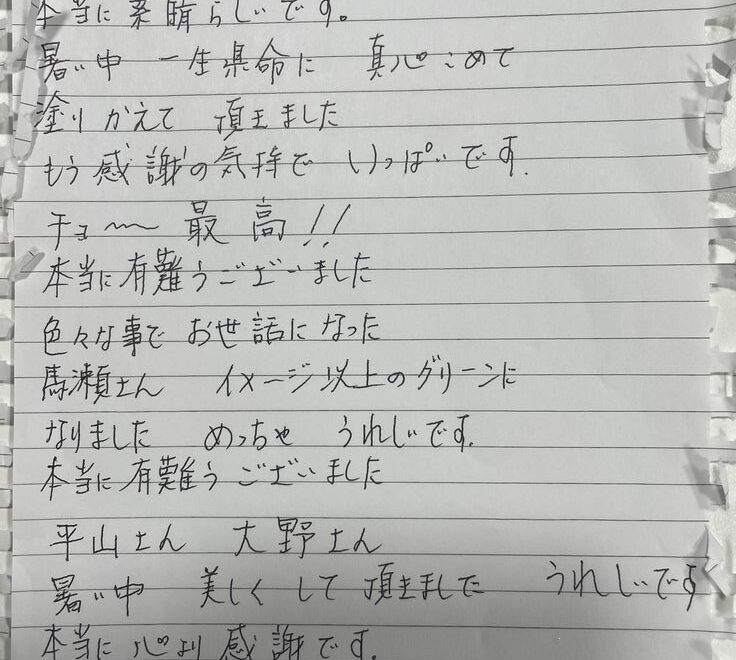 本当に素晴らしいです。
暑い中 一生県命に 真心こめて
塗りかえて 頂きました
もう感謝の気持で いっぱいです.
チョ〜〜 最高!!
本当に有難うございました
色々な事で お世話になった
馬瀬さん イメージ以上のグリーンに
なりました めっちゃ うれしいです.
本当に有難うございました
平山さん 大野さん
暑い中 美しく して 頂きました うれしいです
本当に心より感謝です.